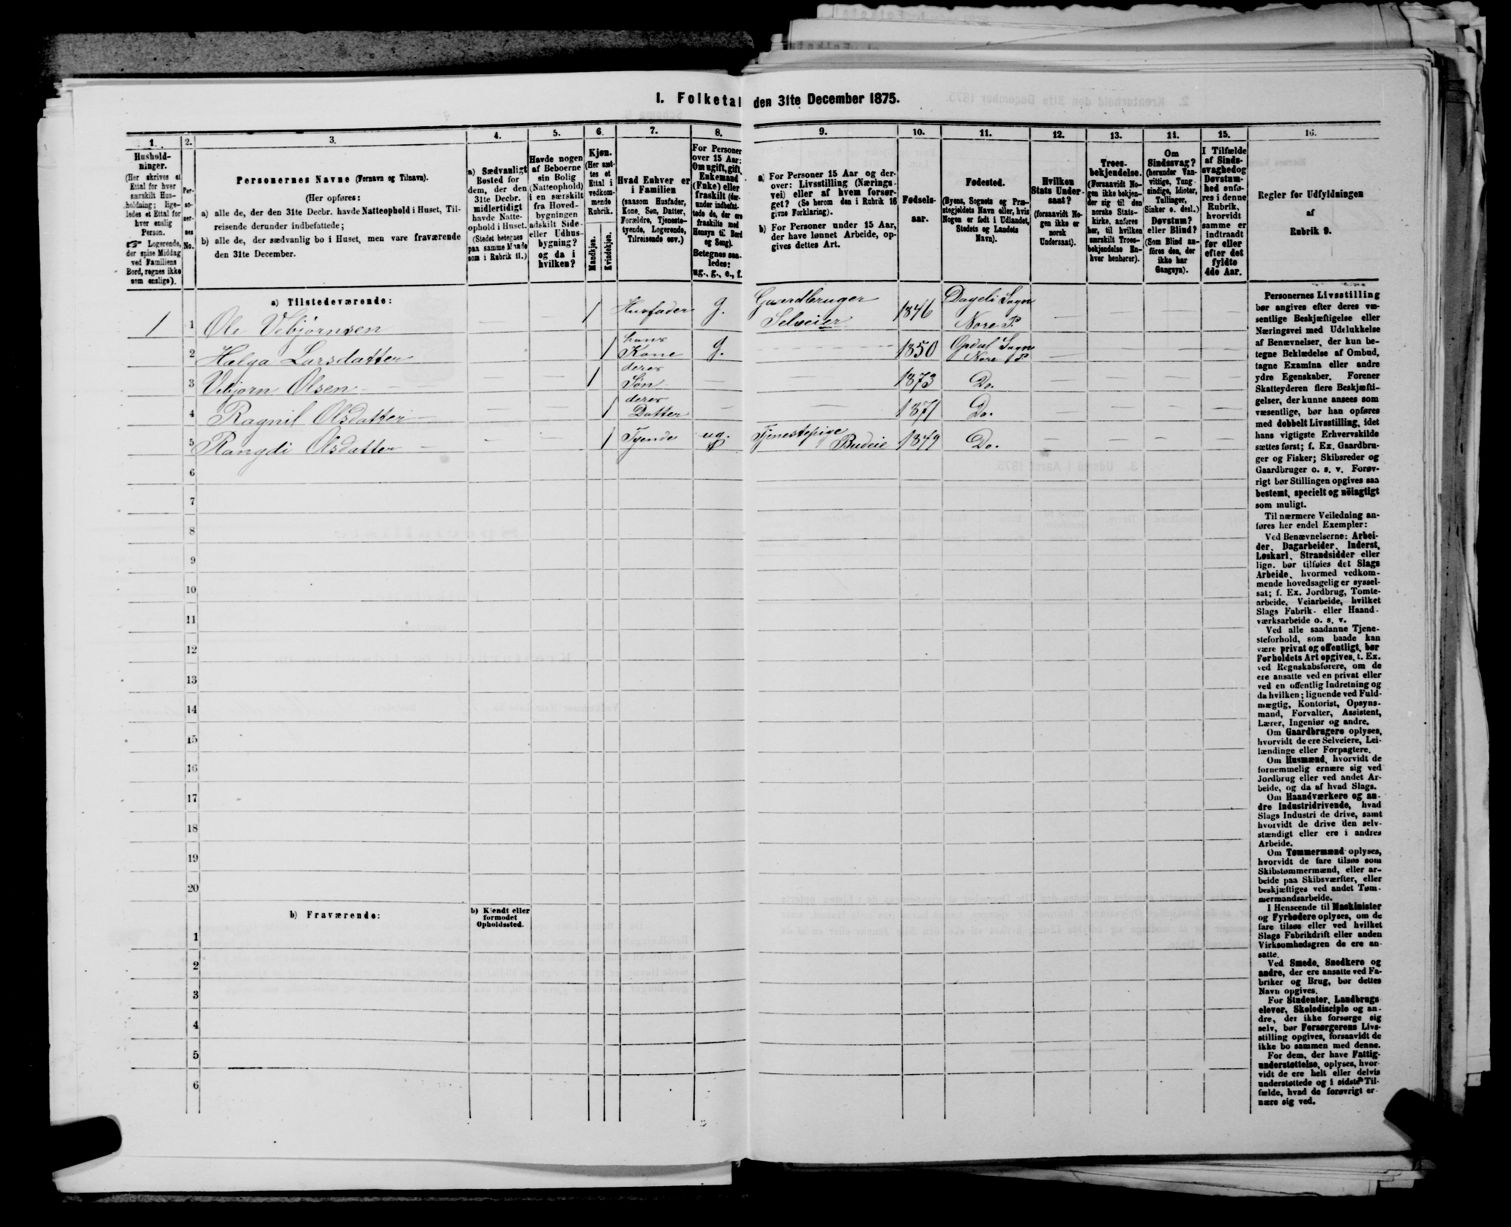 I. Folketal den 31te December 1875.
1. 2. 3. 4. 5. 6. 7. 8. 9. 10. 11. 12. 13. 14. 15. 16.
Hushold-
ninger.
(Her skrives et
Ettal for hver
særskilt Hus-
holdning; lige-
ledes et Ettal for
hver enslig
Person.
☞ Logerende,
der spise Middag
ved Familiens
Bord, regnes ikke
som enslige).
Per-
so-
ner-
nes
No.
Personernes Navne (Fornavn og Tilnavn).
(Her opføres:
a) alle de, der den 31te Decbr. havde Natteophold i Huset, Til-
reisende derunder indbefattede;
b) alle de, der sædvanlig bo i Huset, men vare fraværende
den 31te December.
a) Sædvanligt
Bosted for
dem, der den
31te Decbr.
midlertidigt
havde Natte-
ophold i Huset.
(Stedet betegnes
paa samme Maade
som i Rubrik 11.)
Havde nogen
af Beboerne
sin Bolig
(Natteophold)
i en særskilt
fra Hoved-
bygningen
adskilt Side-
eller Udhus-
bygning?
og da i
hvilken?
Kjøn.
(Her sæt-
tes et
Ettal i
vedkom-
mende
Rubrik.
Mandkjøn.
Kvindekjøn.
Hvad Enhver er
i Familien
(saasom Husfader,
Kone, Søn, Datter,
Forældre, Tjeneste-
tyende, Logerende,
Tilreisende osv.)
For Personer
over 15 Aar:
Om ugift, gift,
Enkemand
(Enke) eller
fraskilt (der-
under indbefat-
tede de, der ere
fraskilte med
Hensyn til Bord
og Seng).
Betegnes saa-
ledes:
ug., g., e., f.
a) For Personer 15 Aar og der-
over: Livsstilling (Nærings-
vei) eller af hvem forsør-
get? (Se herom den i Rubrik 16
givne Forklaring).
b) For Personer under 15 Aar,
der have lønnet Arbeide, op-
gives dettes Art.
Fødsels-
aar.
Fødested.
(Byens, Sognets og Præ-
stegjeldets Navn eller, hvis
Nogen er født i Udlandet,
Stedets og Landets
Navn).
Hvilken
Stats Under-
saat?
(forsaavidt No-
gen ikke er
norsk
Undersaat).
Troes-
bekjendelse.
(Forsaavidt No-
gen ikke bekjen-
der sig til den
norske Stats-
kirke, anføres
her, til hvilken
særskilt Troes-
bekjendelse En-
hver henhører).
Om
Sindssvag?
(herunder Van-
vittige, Tung-
sindige, Idioter,
Tullinger,
Sinker o. desl.)
Døvstum?
eller Blind?
(Som Blind an-
føres den, der
ikke har
Gangsyn).
I Tilfælde
af Sinds-
svaghed og
Døvstum-
hed anfø-
res i denne
Rubrik,
hvorvidt
samme er
indtraadt
før eller
efter det
fyldte
4de Aar.
Regler for Udfyldningen
af
Rubrik 9.
a) Tilstedeværende:
1 1 Ole Vebjørnsen 1 Husfader g. Gaardbruger Selveier 1846 Dagali Sogn Nore P.
2 Helga Larsdatter 1 hans Kone g. 1850 Opdal Sogn Nore P.
3 Vebjørn Olsen 1 deres Søn 1873 Do.
4 Ragnil Olsdatter 1 deres Datter 1871 Do.
5 Rangdi Olsdatter 1 Tyende ug. Tjenestepige Budeie 1849 Do.
6
7
8
9
10
11
12
13
14
15
16
17
18
19
20
b) Fraværende:
b) Kjendt eller
formodet
Opholdssted.
1
2
3
4
5
6
Personernes Livsstilling
bør angives efter deres væ-
sentlige Beskjæftigelse eller
Næringsvei med Udelukkelse
af Benævnelser, der kun be-
tegne Beklædelse af Ombud,
tagne Examina eller andre
ydre Egenskaber. Forener
Skatteyderen flere Beskjæfti-
gelser, der kunne ansees som
væsentlige, bør han opføres
med dobbelt Livsstilling, idet
hans vigtigste Erhvervskilde
sættes først; f. Ex. Gaardbru-
ger og Fisker; Skibsreder og
Gaardbruger o. s. v. Forøv-
rigt bør Stillingen opgives saa
bestemt, specielt og nöiagtigt
som muligt.
Til nærmere Veiledning an-
føres her endel Exempler:
Ved Benævnelserne: Arbei-
der, Dagarbeider, Inderst,
Løskarl, Strandsidder eller
lign. bør tilføies det Slags
Arbeide, hvormed vedkom-
mende hovedsagelig er syssel-
sat; f. Ex. Jordbrug, Tomte-
arbeide, Veiarbeide, hvilket
Slags Fabrik- eller Haand-
værksarbeide o. s. v.
Ved alle saadanne Tjene-
steforhold, som baade kan
være privat og offentligt, bør
Forholdets Art opgives, t. Ex.
ved Regnskabsførere, om de
ere ansatte ved en privat eller
ved en offentlig Indretning og
da hvilken; lignende ved Fuld-
mægtig, Kontorist, Opsyns-
mand, Forvalter, Assistent,
Lærer, Ingeniør og andre.
Om Gaardbrugere oplyses,
hvorvidt de ere Selveiere, Lei-
lændinge eller Forpagtere.
Om Husmænd, hvorvidt de
fornemmelig ernære sig ved
Jordbrug eller ved andet Ar-
beide, og da af hvad Slags.
Om Haandværkere og an-
dre Industridrivende, hvad
Slags Industri de drive, samt
hvorvidt de drive den selv-
stændigt eller ere i andres
Arbeide.
Om Tømmermænd oplyses,
hvorvidt de fare tilsøs som
Skibstømmermænd, eller ar-
beide paa Skibsværfter, eller
beskjæftiges ved andet Tøm-
mermandsarbeide.
I Henseende til Maskinister
og Fyrbødere oplyses, om de
fare tilsøs eller ved hvilket
Slags Fabrikdrift eller anden
Virksomhedsgren de ere an-
satte.
Ved Smede, Snedkere og
andre, der ere ansatte ved Fa-
briker og Brug, bør dettes
Navn opgives.
For Studenter, Landbrugs
elever, Skoledisciple og an-
dre, der ikke forsørge sig
selv, bør Forsørgerens Livs-
stilling opgives, forsaavidt de
ikke bo sammen med denne.
For dem, der have Fattig-
understøttelse, oplyses, hvor-
vidt de ere helt eller delvis
understøttede og i sidste Til-
fælde, hvad de forøvrigt er-
nære sig ved.